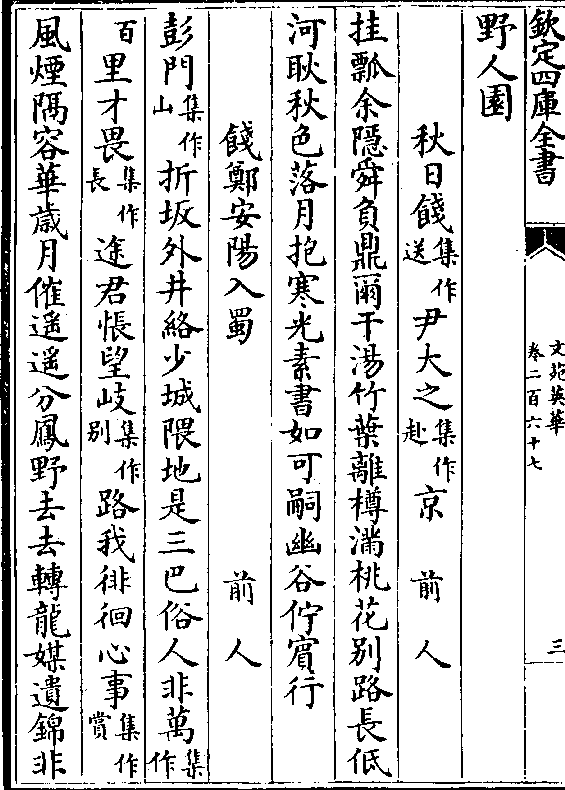 欽定四庫全書
文苑英華
卷二百六十七
三
野人園
秋日餞集作送尹大之集作赴京 前人
挂瓢余隱舜負鼎爾干湯竹葉離樽滿桃花别路長低
河耿秋色落月抱寒光素書如可嗣幽谷佇賓行
餞鄭安陽入蜀 前人
彭門集作山折坂外井絡少城隈地是三巴俗人非萬集作
百里才畏集作長途君悵望岐集作别路我徘徊心事集作賞
風煙隔容華歲月催遥遥分鳳野去去轉龍媒遺錦非